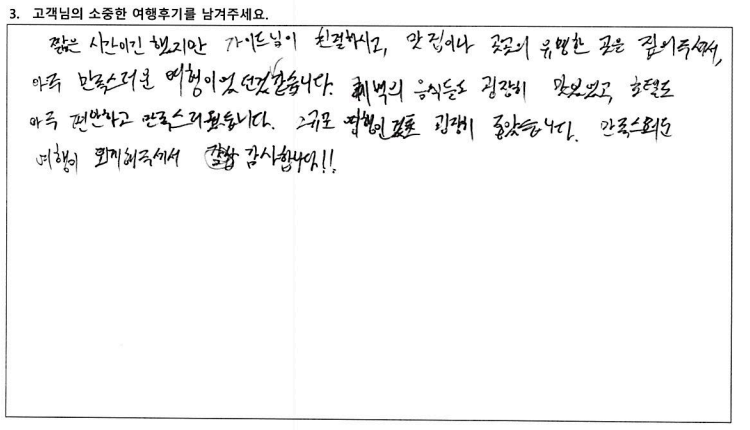 3. 고객님의 소중한 여행후기를 남겨주세요.
짧은 시간이긴 했지만 가이드님이 친절하시고, 맛집이나 곳곳의 유명한 곳은 집어주셔서,
아주 만족스러운 여행이었던것 같습니다. 음식들도 굉장히 맛있었고, 호텔도
아주 편안하고 만족스러웠습니다. 소규모 여행인 굉장히 좋았습니다.
여행이 감사합니다!!